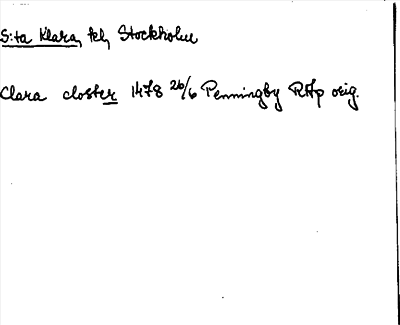 S:ta Klara, kl, Stockholm
Clara closter 1478 26/6 Penningby RAp orig.